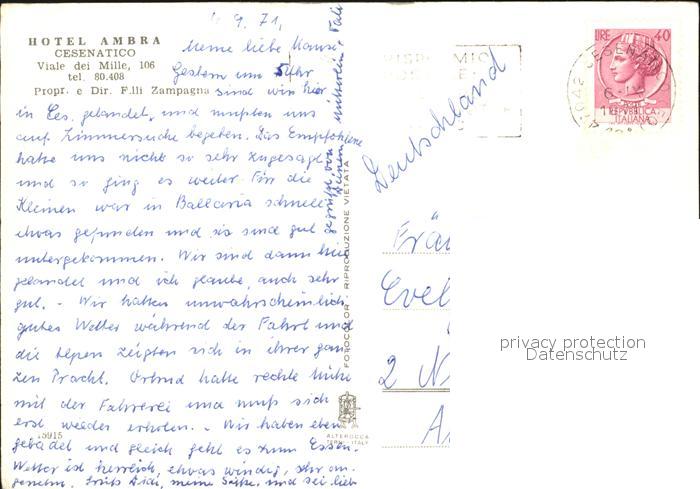 4.9.71,
HOTEL AMBRA
CESENATICO
Viale dei Mille, 106
tel. 80.408
Propr. e Dir. F.lli Zampagna
Meine liebe
Gestern um 5 Uhr
sind wir hier
in Ces. gelandet, und mußten uns
auf Zimmersuche begeben. Das Empfohlene
hatte uns nicht so sehr zugesagt
und so ging es weiter. Für die
Kleinen war in Bellaria schnell
etwas gefunden und sie sind gut
untergekommen. Wir sind dann hier
gelandet und ich glaube, auch sehr
gut. - Wir hatten unwahrscheinlich
gutes Wetter während der Fahrt und
die Alpen zeigten sich in ihrer gan-
zen Pracht. hatte rechte Mühe
mit der Fahrerei und muß sich
erst wieder erholen. - Wir haben eben
gebadet und gleich geht es zum Essen.
Wetter ist herrlich, etwas windig, sehr an-
genehm. Grüß Dich, meine Süße, und sei lieb
gegrüßt von
Deinem
15915
FOROCOLOR RIPRODUZIONE VIETATA
ALTEROCCA
TERNI ITALY
LIRE 40
REPVBBLICA
ITALIANA
Deutschland
Frä
Evel
2 N
privacy protection
Datenschutz